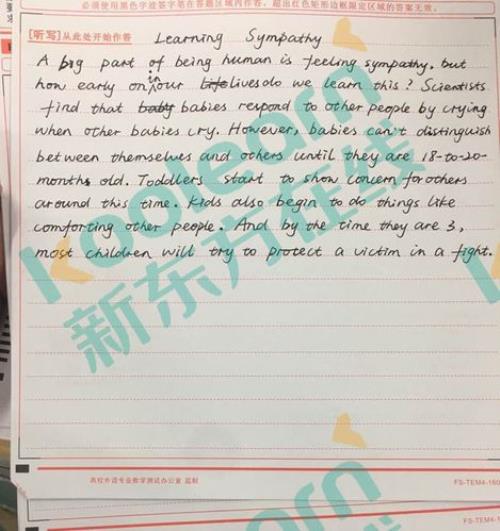 必须使用黑色字迹签字笔在答题区域内作答，超出红色矩形边框限定区域的答案无效。
[听写]从此处开始作答 Learning Sympathy
A big part of being human is feeling sympathy. but
how early on in our life lives do we learn this? Scientists
find that baby babies respond to other people by crying
when other babies cry. However, babies can't distinguish
between themselves and others until they are 18-to-20-
months old. Toddlers start to show concern for others
around this time. Kids also begin to do things like
comforting other people. And by the time they are 3,
most children will try to protect a victim in a fight.
koolearn
新东方在线
高校外语专业教学测试办公室 监制
FS-TEM4-160
FS-TEM4-1